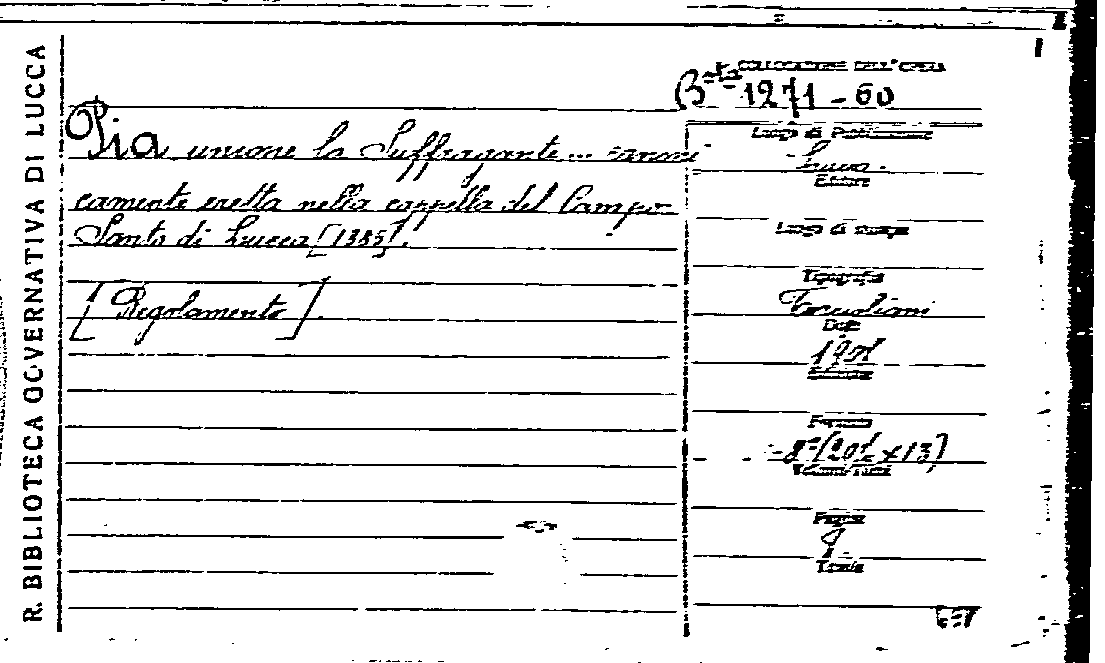 R. BIBLIOTECA GOVERNATIVA DI LUCCA
COLLOCAZIONE DELL'OPERA
B.ta 1271 - 60
Pia unione la Suffragante... canoni
camente eretta nella cappella del Campo-
Santo di Lucca
[Regolamento].
Luogo di Pubblicazione
Lucca.
Editore
Luogo di stampa
Tipografia
Data
Formato
8° (20½ x 13)
Pagine
Tavole